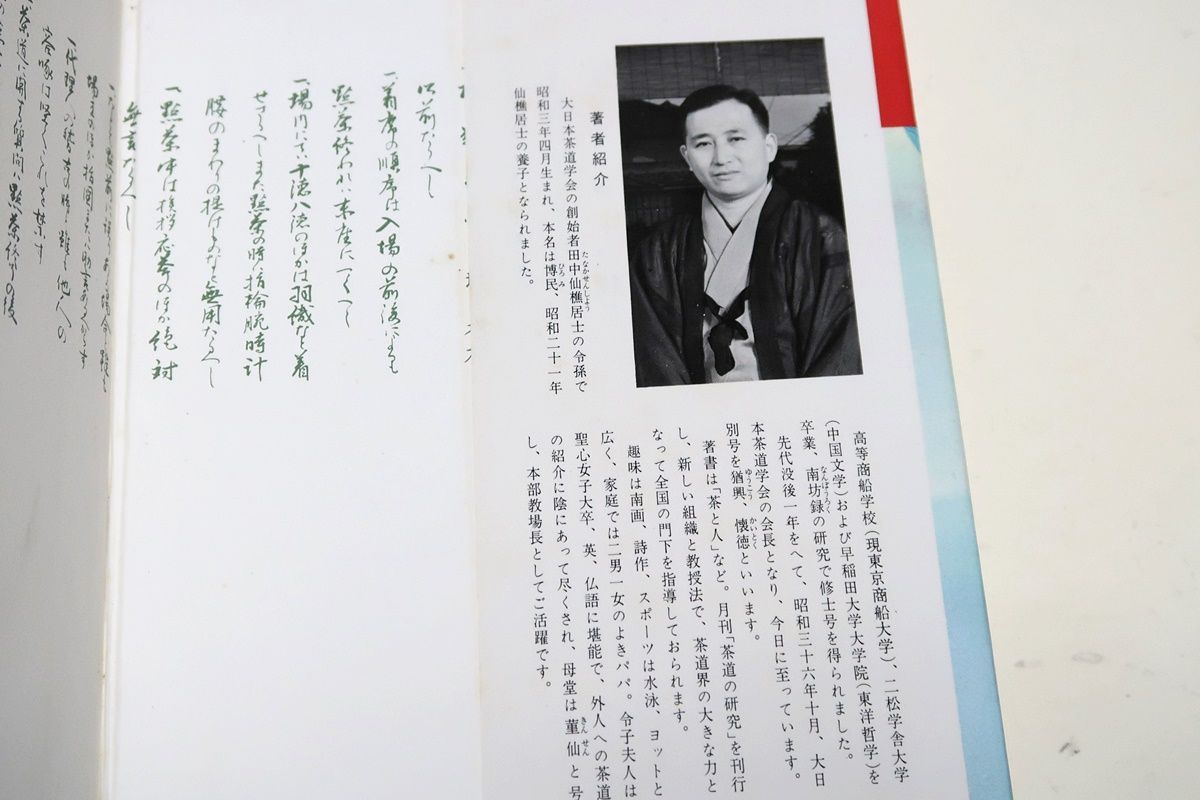 著者紹介
大日本茶道学会の創始者田中仙樵居士の令孫で
昭和三年四月生まれ、本名は博民、昭和二十一年
仙樵居士の養子となられました。
高等商船学校(現東京商船大学)、二松学舎大学
(中国文学)および早稲田大学大学院(東洋哲学)を
卒業、南坊録の研究で修士号を得られました。
先代没後一年をへて、昭和三十六年十月、大日
本茶道学会の会長となり、今日に至っています。
別号を猶興、懐徳といいます。
著書は「茶と人」など。月刊「茶道の研究」を刊行
し、新しい組織と教授法で、茶道界の大きな力と
なって全国の門下を指導しておられます。
趣味は南画、詩作、スポーツは水泳、ヨットと
広く、家庭では二男一女のよきパパ。令子夫人は
聖心女子大卒、英、仏語に堪能で、外人への茶道
の紹介に陰にあって尽くされ、母堂は菫仙と号
し、本部教場長としてご活躍です。
以前たるへし
一、着席の順序は入場の前後によるも
點茶終われハ末座につくへし
一、場内にてハ十徳八徳のほかは羽織など着
せさるへしまた點茶の時ハ指輪腕時計
腰のまわりの提けものなど無用たるへし
一、點茶中は挨拶応答のほか絶対
無言たるへし